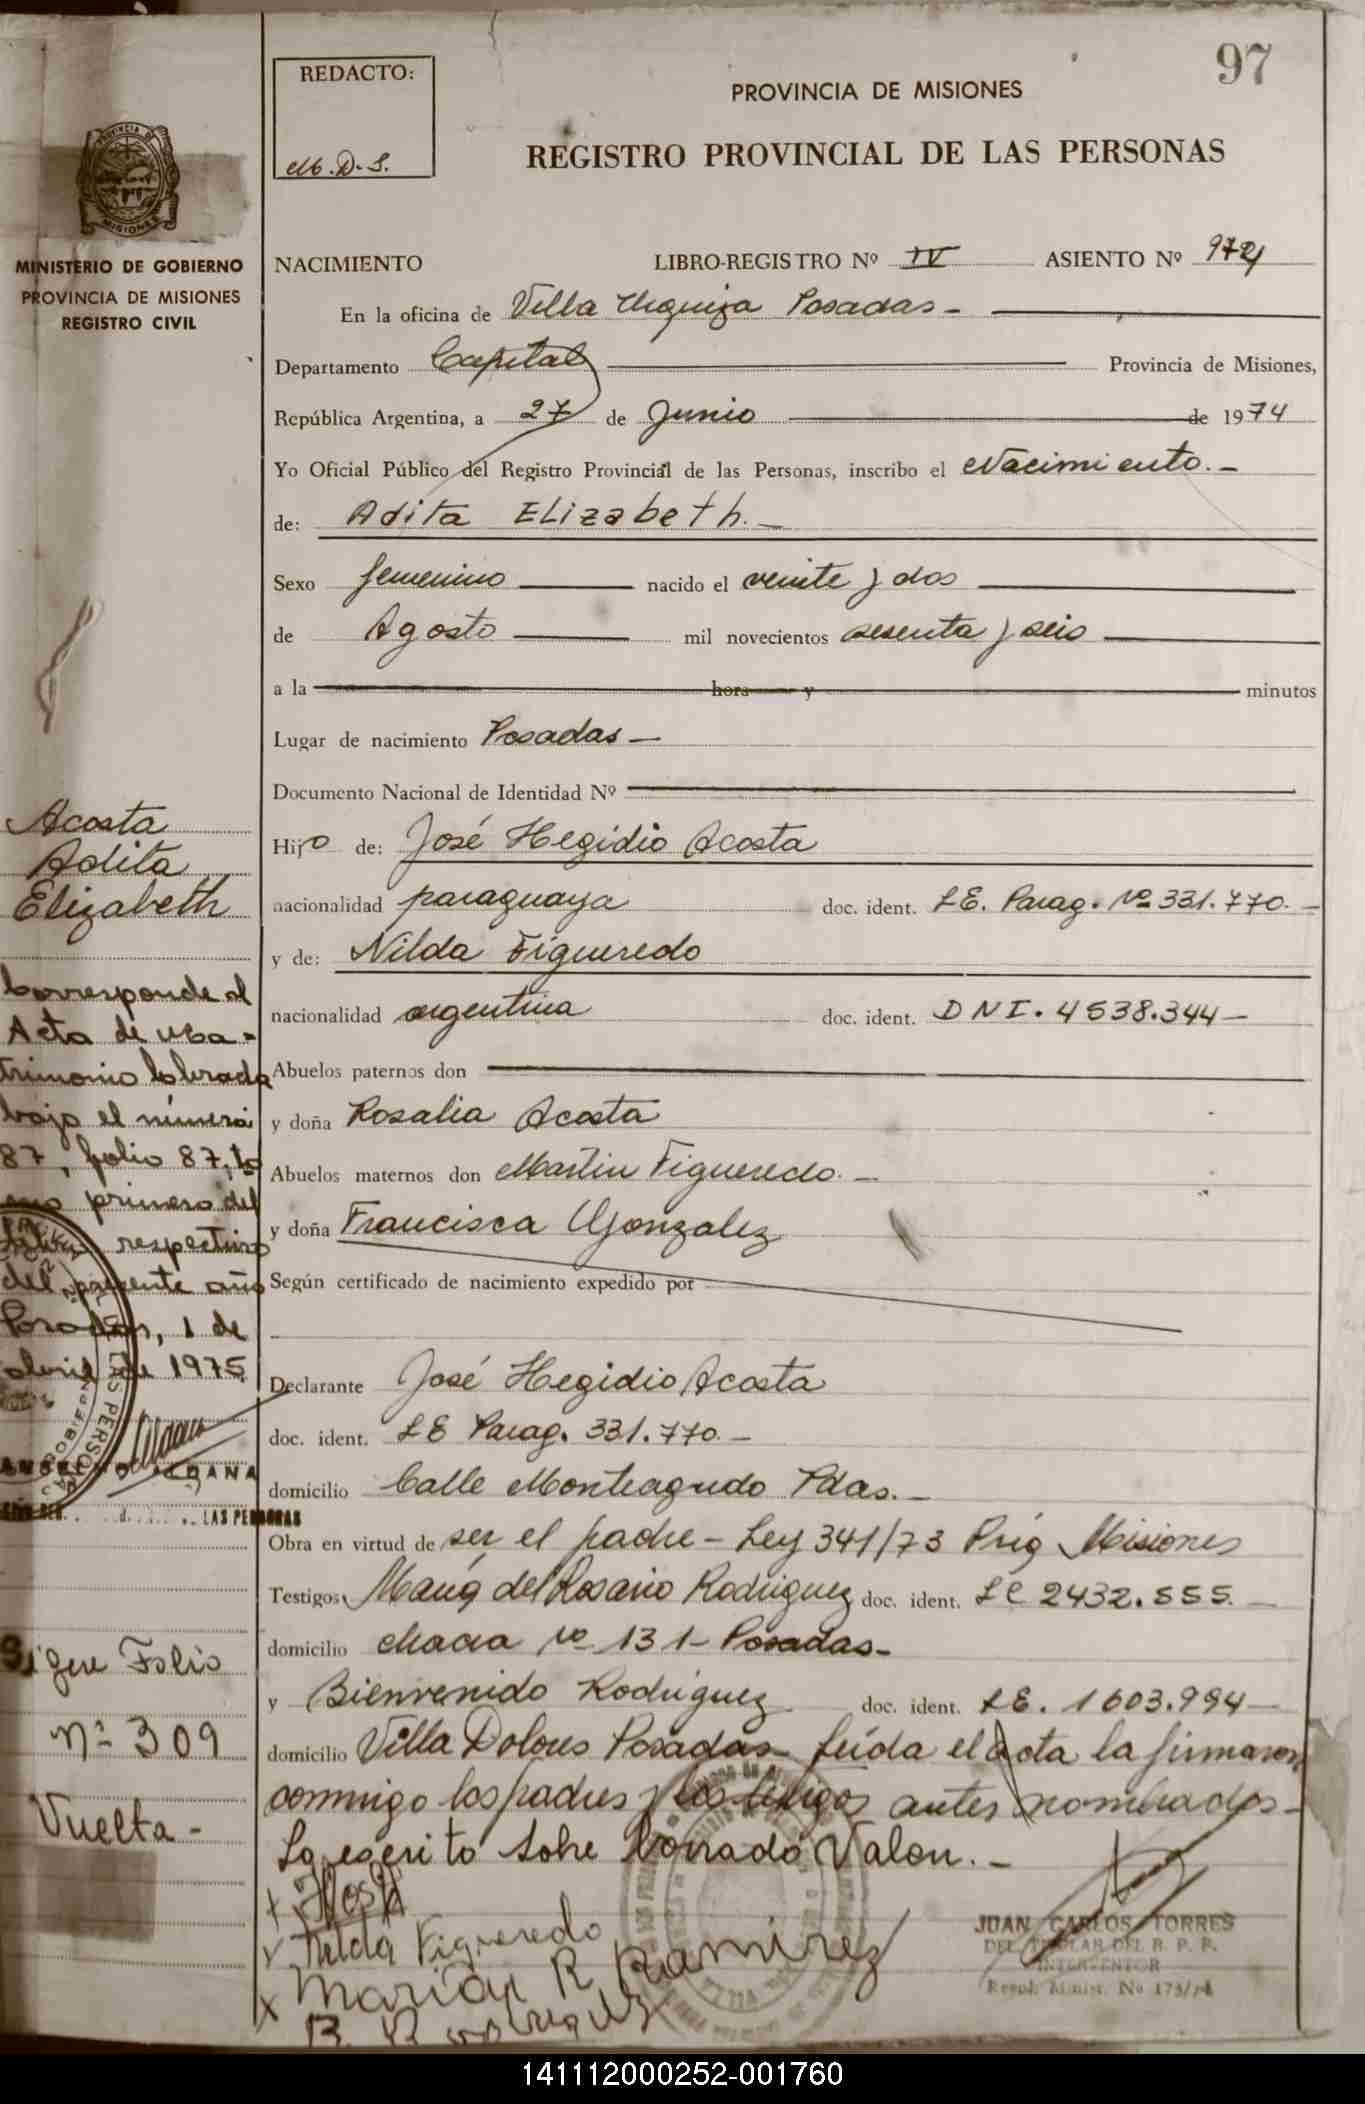 97
REDACTO:
M.D.S.
PROVINCIA DE MISIONES
REGISTRO PROVINCIAL DE LAS PERSONAS
MINISTERIO DE GOBIERNO
PROVINCIA DE MISIONES
REGISTRO CIVIL
NACIMIENTO LIBRO-REGISTRO Nº IV ASIENTO Nº
En la oficina de Villa Urquiza Posadas -
Departamento Capital Provincia de Misiones,
República Argentina, a 27 de Junio de 1974
Yo Oficial Público del Registro Provincial de las Personas, inscribo el Nacimiento.-
de: Adita Elizabeth.-
Sexo femenino nacido el veinte y dos
de Agosto mil novecientos sesenta y seis
a la hora y minutos
Lugar de nacimiento Posadas -
Documento Nacional de Identidad Nº
Hijo de: José Hegidio Acosta
nacionalidad paraguaya doc. ident. LE. Parag. Nº 331.770.-
y de: Nilda Figueredo
nacionalidad argentina doc. ident. DNI. 4538.344-
Abuelos paternos don
y doña Rosalia Acosta
Abuelos maternos don Martin Figueredo.-
y doña Francisca Gonzalez
Según certificado de nacimiento expedido por
Declarante José Hegidio Acosta
doc. ident. LE Parag. 331.770.-
domicilio Calle Monteagudo Pdas.-
Obra en virtud de ser el padre - Ley 341/73 Misiones
Testigos María del Rosario Rodriguez doc. ident. LC 2432.555.-
domicilio Nº 131- Posadas-
y Bienvenido Rodriguez doc. ident. LE. 1603.994-
domicilio Villa Dolores Posadas- leída el acta la firmaron
conmigo los padres y los testigos antes nombrados-
Lo escrito sobre borrado Valen.-
Nilda Figueredo
Maria R Ramirez
B. Rodriguez
JUAN CARLOS TORRES
DEL. TITULAR DEL R. P. P.
INTERVENTOR
Resol. Minist. No 175/74
Acosta
Adita
Elizabeth
Corresponde al
Acta de Ma-
trimonio labrada
bajo el número
87, folio 87, to
mo primero del
respectivo
del presente año
Posadas, 1 de
abril de 1975
LAS PERSONAS
Sigue Folio
Nº 309
Vuelta -
141112000252-001760